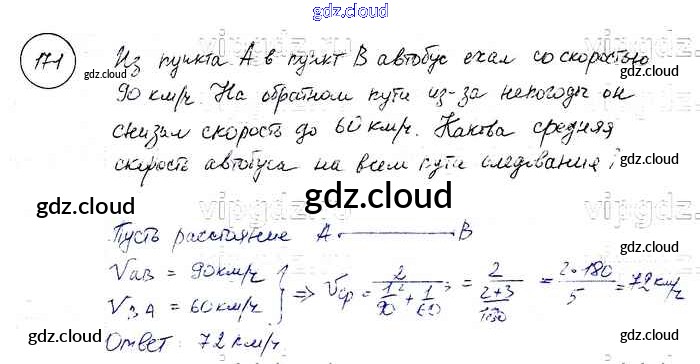 gdz.cloud
171 Из пункта А в пункт В автобус ехал со скоростью
gdz.cloud gdz.cloud
90 км/ч. На обратном пути из-за непогоды он
снизил скорость до 60 км/ч. Какова средняя
gdz.cloud
скорость автобуса на всем пути следования?
gdz.cloud
gdz.cloud
vipgdz
Пусть расстояние А B
gdz.cloud
V AB = 90 км/ч
V BA = 60 км/ч } => Vср = 2 / (1/90 + 1/60) = 2 / ((2+3)/180) = 2·180 / 5 = 72 км/ч
gdz.cloud gdz.cloud
Ответ: 72 км/ч.
gdz.cloud